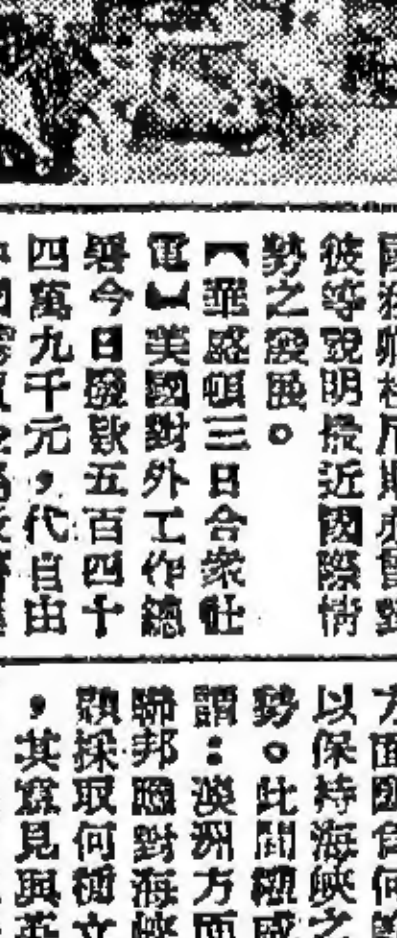 彼等說明最近國際情
勢之發展。
【華盛頓三日合衆社
電】美國對外工作總
署今日撥欵五百四十
四萬九千元，代自由
以保持海峽之
勢。此間
謂：澳洲方面
聯邦應對海峽
採取何種文
，其意見與英